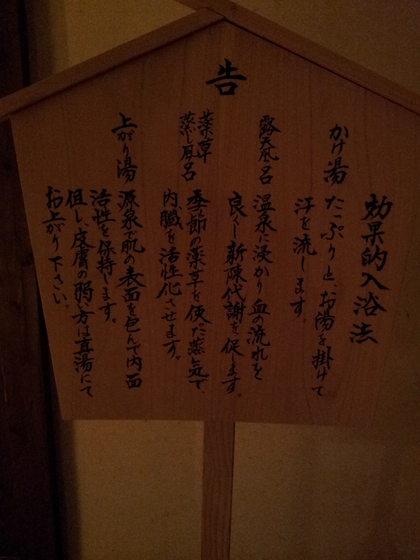 告
効果的入浴法
かけ湯 たっぷりと、お湯を掛けて
汗を流します。
露天風呂 温泉に浸かり血の流れを
良くし新陳代謝を促ます。
薬草
蒸し風呂 季節の薬草を使た蒸気で、
内臓を活性化させます。
上がり湯 源泉が肌の表面を包んで内面
活性を保持します。
但し、皮膚の弱い方は直湯にて
お上がり下さい。